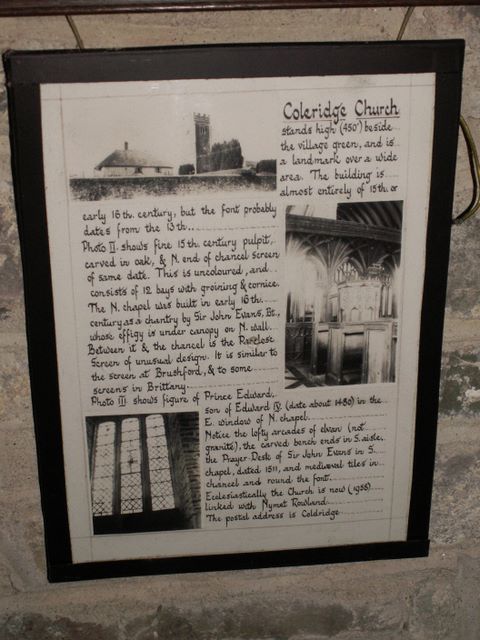 Coleridge Church
stands high (450') beside
the village green, and is
a landmark over a wide
area. The building is
almost entirely of 15th. or
early 16th. century, but the font probably
dates from the 13th..
Photo II. shows fine 15th. century pulpit,
carved in oak, & N. end of chancel screen
of same date. This is uncoloured, and
consists of 12 bays with groining & cornice.
The N. chapel was built in early 16th.
century as a chantry by Sir John Evans, Bt.,
whose effigy is under canopy on N. wall.
Between it & the chancel is the Parclose
Screen of unusual design. It is similar to
the screen at Brushford, & to some
screens in Brittany.
Photo III shows figure of Prince Edward,
son of Edward IV. (date about 1480) in the
E. window of N. chapel.
Notice the lofty arcades of elvan (not
granite), the carved bench ends in S. aisle,
the Prayer-Desk of Sir John Evans in S.
chapel, dated 1511, and mediæval tiles in
chancel and round the font.
Ecclesiastically the Church is now (1955)
linked with Nymet Rowland.
The postal address is Coldridge